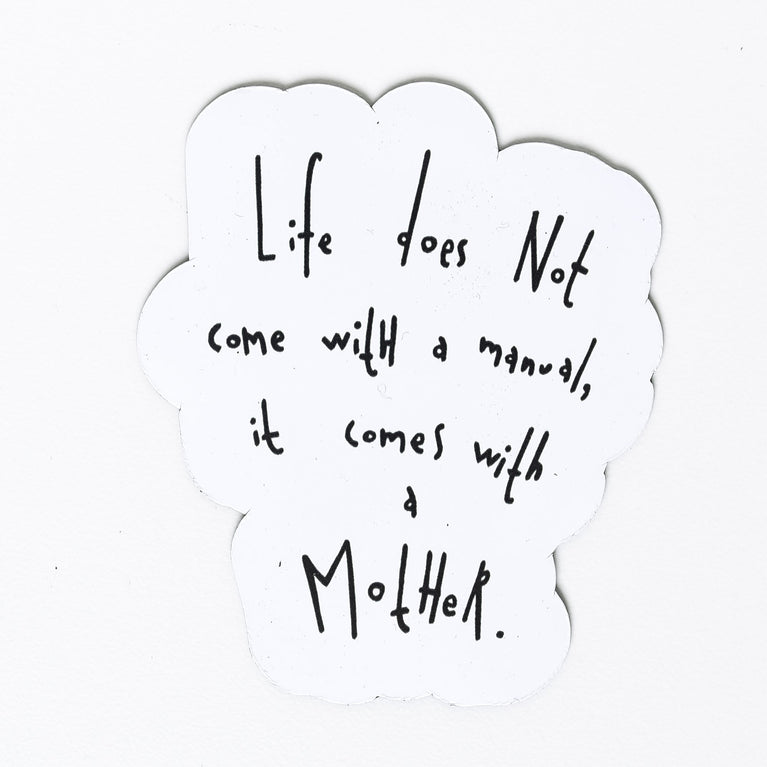 Life does Not
come with a manual,
it comes with
a
MotHeR.